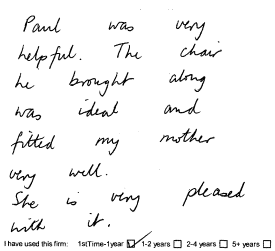 Paul was very
helpful. The chair
he brought along
was ideal and
fitted my mother
very well.
She is very pleased
with it.
I have used this firm: 1stTime-1year ☑ 1-2 years ☐ 2-4 years ☐ 5+ years ☐